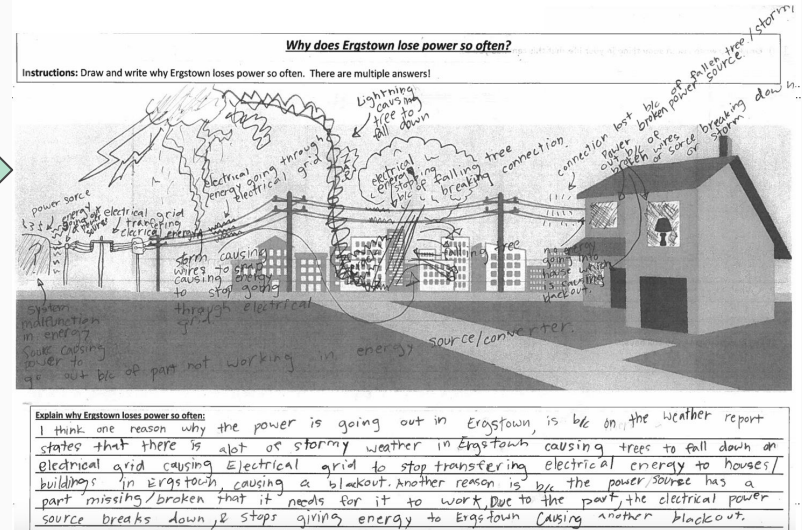 Why does Ergstown lose power so often?
Instructions: Draw and write why Ergstown loses power so often. There are multiple answers!
Lightning
causing
tree to
fall down
connection lost b/c of fallen tree/storm/
broken power source.
Power
out b/c of
broken wires
or sorce breaking down
or storm
electrical energy going through
electrical grid
electrical
energy
stopping
b/c of falling tree
breaking connection.
power sorce
energy
going out
of power
source
electrical grid
tranfering
elecrical energy
storm causing
wires to snap
causing energy
to stop going
through electrical
grid
falling tree
no energy
going into
house which
is causing
blackout.
system
malfunction
in energy
source causing
power to
go out b/c of part not working in energy source/converter.
Explain why Ergstown loses power so often:
I think one reason why the power is going out in Ergstown, is b/c on the weather report
states that there is alot of stormy weather in Ergstown causing trees to fall down on
electrical grid causing Electrical grid to stop transfering electrical energy to houses/
buildings in Ergstown, causing a blackout. Another reason is b/c the power source has a
part missing/broken that it needs for it to work, Due to the part, the electrical power
source breaks down, & stops giving energy to Ergstown Causing another blackout.